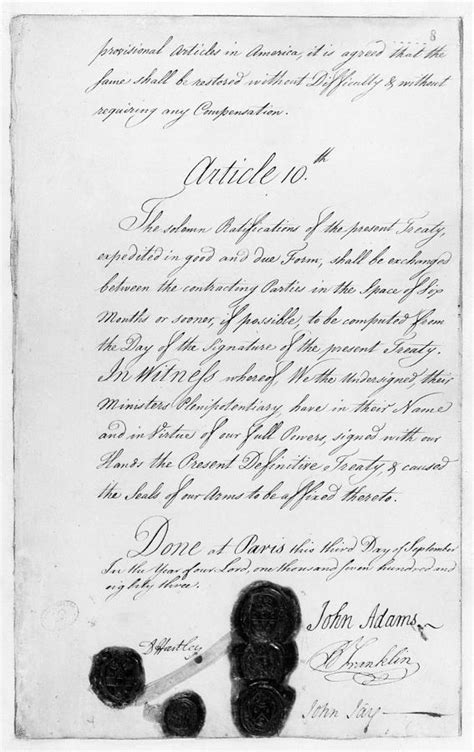 8
provisional Articles in America, it is agreed that the
same shall be restored without Difficulty & without
requiring any Compensation.
Article 10.th
The solemn Ratifications of the present Treaty,
expedited in good and due Form, shall be exchanged
between the contracting Parties in the Space of Six
Months or sooner, if possible, to be computed from
the Day of the Signature of the present Treaty.
In Witness whereof, We the Undersigned, their
Ministers Plenipotentiary, have in their Name
and in Virtue of our full Powers, signed with our
Hands the Present Definitive Treaty, & caused
the Seals of our Arms to be affixed thereto.
Done at Paris this third Day of September
In the Year of our Lord, one thousand seven hundred and
eighty three.
D Hartley
John Adams
B Franklin
John Jay